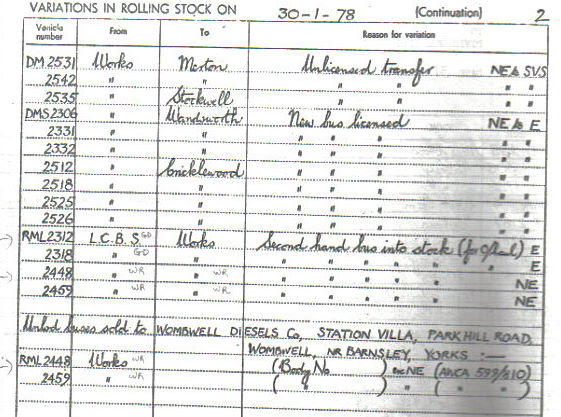 VARIATIONS IN ROLLING STOCK ON 30-1-78 (Continuation) 2
Vehicle number From To Reason for variation
DM 2531 Works Merton Unlicensed transfer NE to SVS
2542 " " " " " "
2535 " Stockwell " " " "
DMS 2306 " Wandsworth New bus licensed NE to E
2331 " " " " " " "
2332 " " " " " " "
2512 " Cricklewood " " " " "
2518 " " " " " " "
2525 " " " " " " "
2526 " " " " " " "
RML 2312 L.C.B.S GD Works Second hand bus into stock E
2318 " GD " " " " " " E
2448 " WR " WR " " " " " NE
2459 " WR " WR " " " " " NE
buses sold to WOMBWELL DIESELS Co, STATION VILLA, PARKHILL ROAD,
WOMBWELL, NR BARNSLEY, YORKS :—
RML 2448 Works WR (Body No ) NE (
2459 " WR ( " " ) " ( " " )